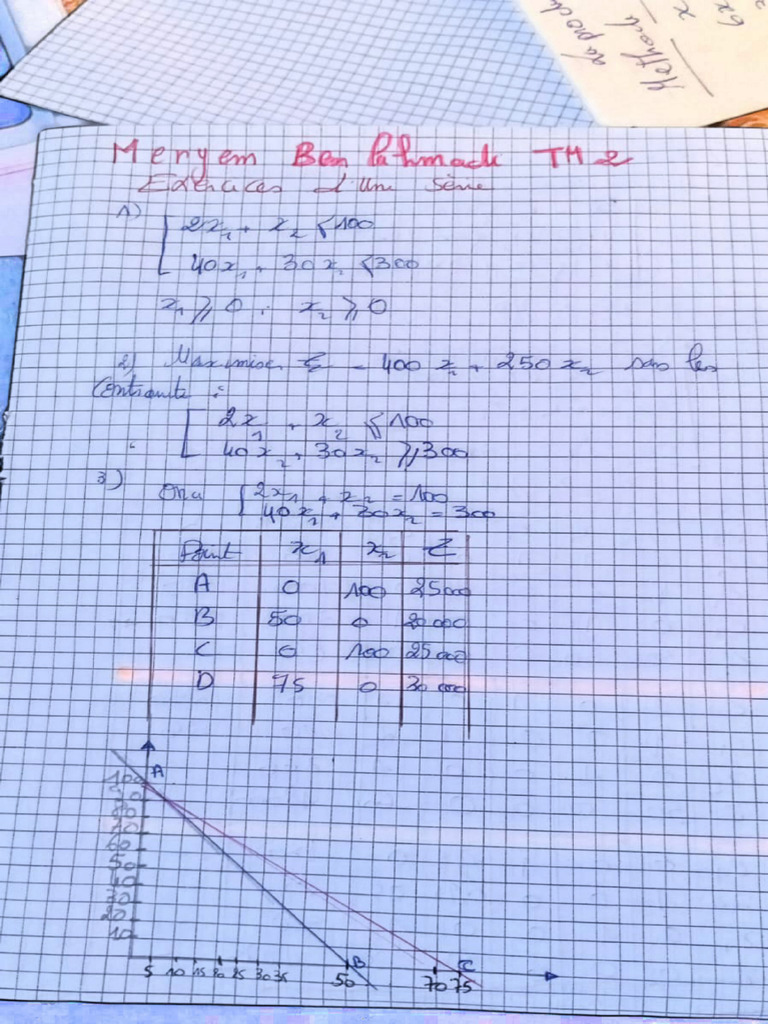 la prod
Method
x
6x
Meryem Ben Lahmadi TM 2
Exercices d'une série
1) { 2x₁ + x₂ ≤ 100
40x₁ + 30x₂ ≤ 300
x₁ ≥ 0 ; x₂ ≥ 0
2) Maximiser Z = 400 x₁ + 250 x₂ sous les
Contrainte :
[ 2x₁ + x₂ ≤ 100
40x₂ + 30x₂ ≥ 300
3) On a { 2x₁ + x₂ = 100
40x₁ + 30x₂ = 300
Point x₁ x₂ Z
A 0 100 25000
B 50 0 20 000
C 0 100 25 000
D 75 0 30 000
A
100
90
80
70
60
50
40
30
20
10
B C
5 10 15 20 25 30 35 50 70 75